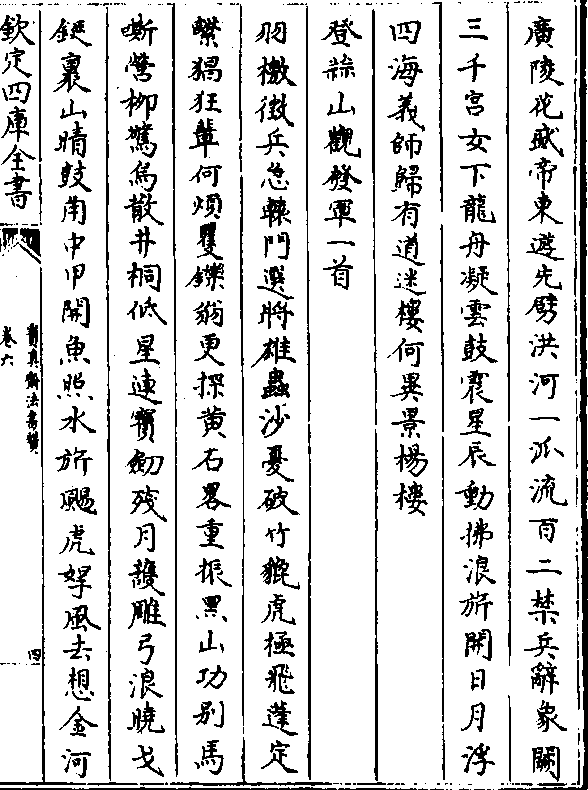 廣陵花盛帝東遊先劈洪河一派流百二禁兵辭象闕
三千宮女下龍舟凝雲鼓震星辰動拂浪旂開日月浮
四海義師歸有道迷樓何異景楊樓
登蒜山觀發軍一首
羽檄徵兵急轅門選將雄蟲沙憂破竹貔虎極飛蓬定
繫猖狂輩何煩矍鑠翁更探黃石畧重振黑山功別馬
嘶營柳驚烏散井桐低星連寶劒殘月讓雕弓浪曉戈
鋋裏山晴鼓角中甲開魚照水旂颺虎拏風去想金河
欽定四庫全書
寶真齋法書贊
卷六
四